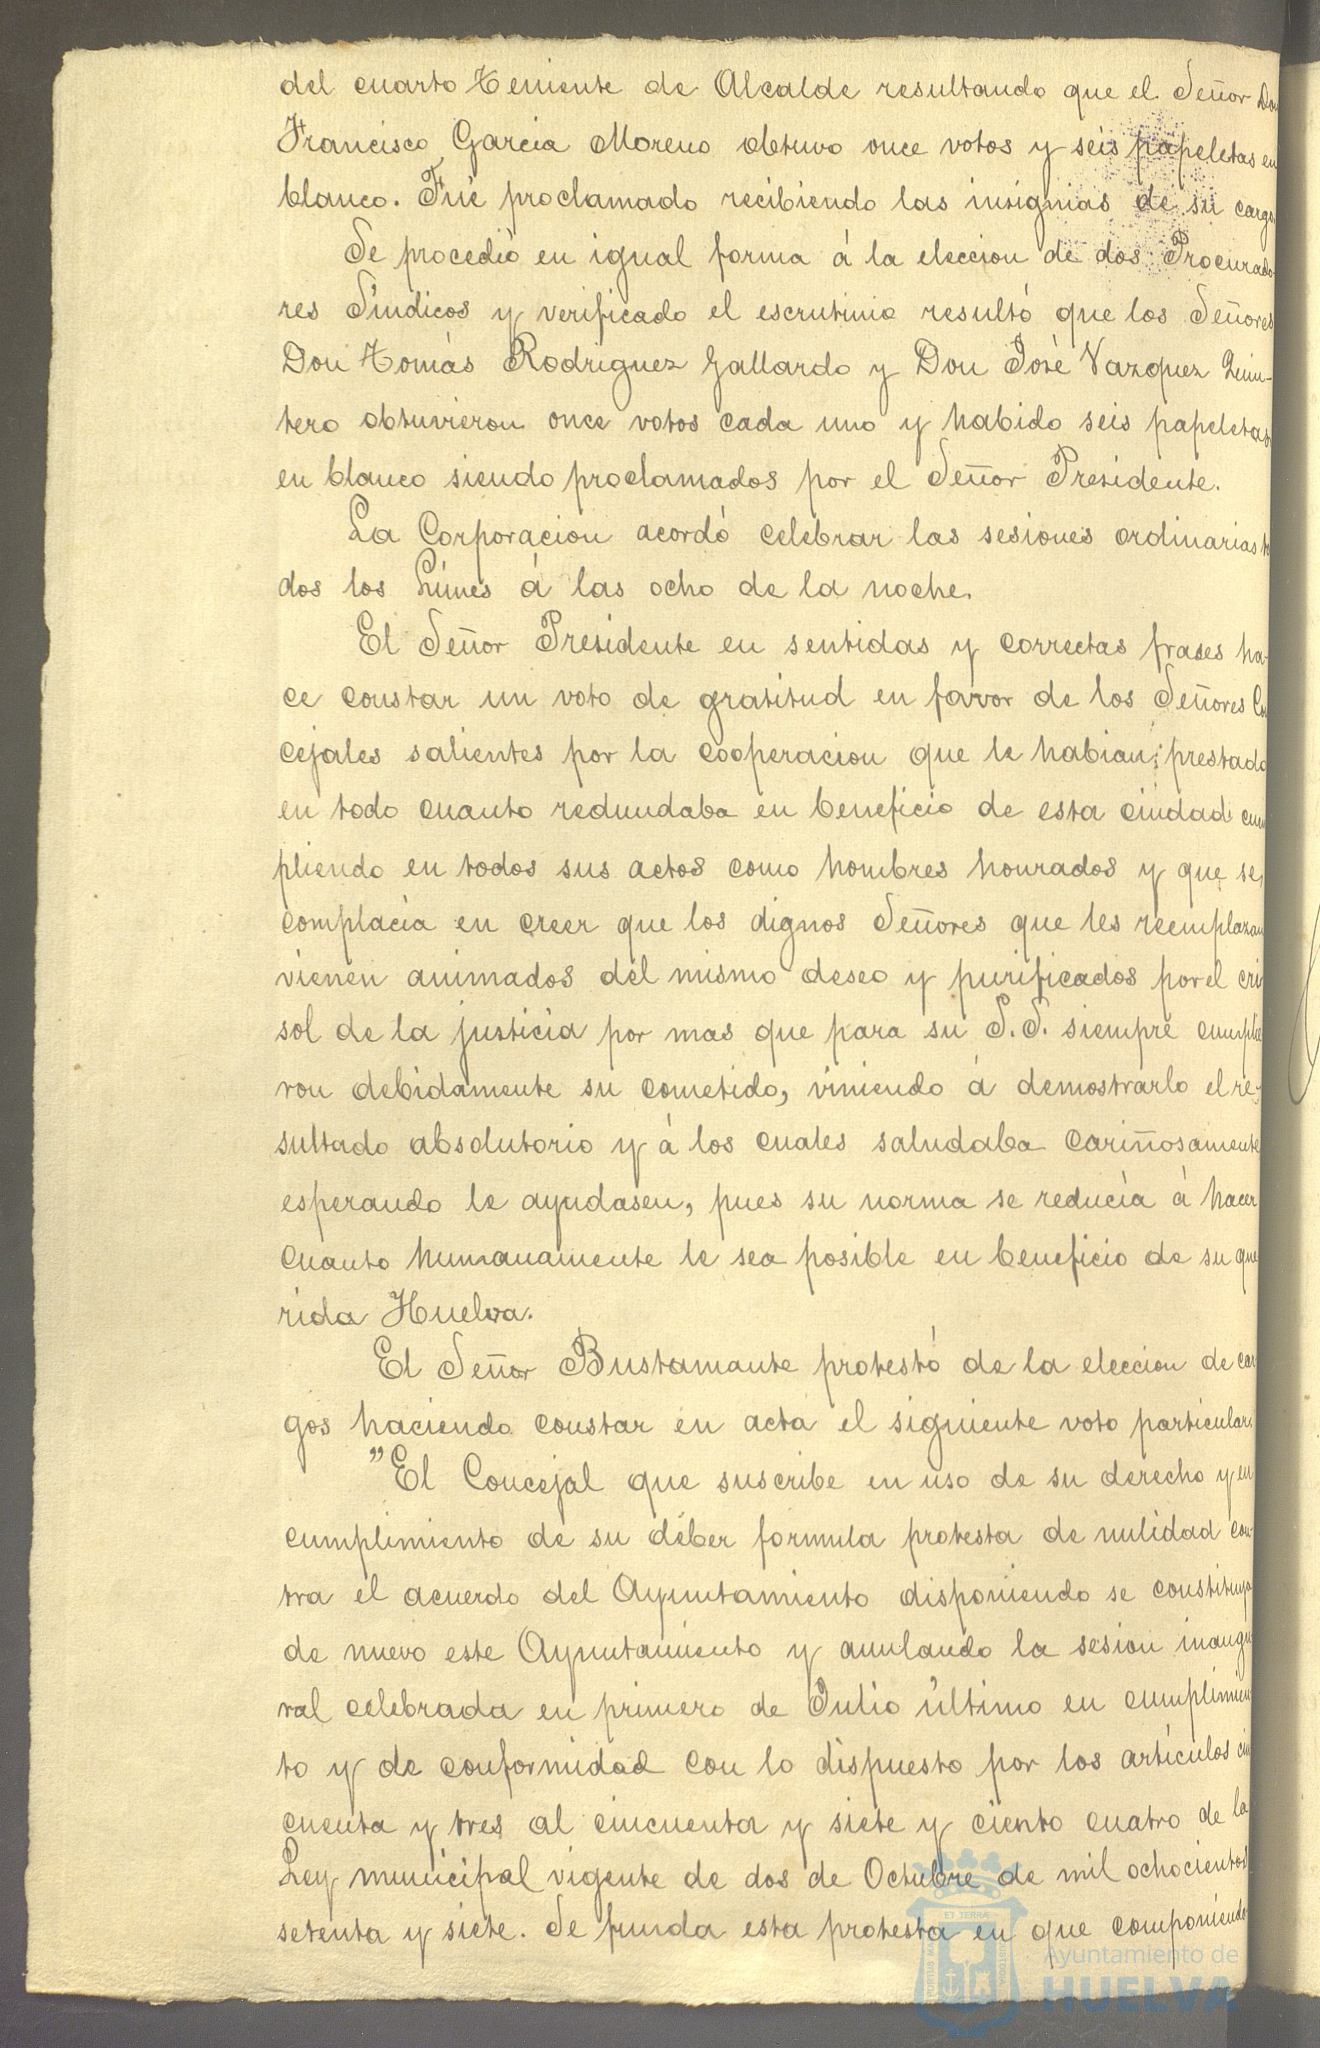 del cuarto Teniente de Alcalde resultando que el Señor Don
Francisco Garcia Moreno obtuvo once votos y seis papeletas en
blanco. Fué proclamado recibiendo las insignias de su cargo.
Se procedió en igual forma á la eleccion de dos Procurado
res Síndicos y verificado el escrutinio resultó que los Señores
Don Tomás Rodriguez Gallardo y Don José Vazquez Quin-
tero obtuvieron once votos cada uno y habido seis papeletas
en blanco siendo proclamados por el Señor Presidente.
La Corporacion acordó celebrar las sesiones ordinarias to
dos los Lúnes á las ocho de la noche.
El Señor Presidente en sentidas y correctas frases ha-
ce constar un voto de gratitud en favor de los Señores Con
cejales salientes por la cooperacion que le habian prestado
en todo cuanto redundaba en beneficio de esta ciudad cum
pliendo en todos sus actos como hombres honrados y que se
complacía en creer que los dignos Señores que les reemplazan
vienen animados del mismo deseo y purificados por el cri
sol de la justicia por mas que para su S.S. siempre cumplie
ron debidamente su cometido, viniendo á demostrarlo el re-
sultado absolutorio y á los cuales saludaba cariñosamente
esperando le ayudasen, pues su norma se reducía á hacer
cuanto humanamente le sea posible en beneficio de su que
rida Huelva.
El Señor Bustamante protestó de la eleccion de car
gos haciendo constar en acta el siguiente voto particular.
"El Concejal que suscribe en uso de su derecho y en
cumplimiento de su déber formula protesta de nulidad con-
tra el acuerdo del Ayuntamiento disponiendo se constituya
de nuevo este Ayuntamiento y anulando la sesion inaugu
ral celebrada en primero de Julio último en cumplimien
to y de conformidad con lo dispuesto por los artículos cin
cuenta y tres al cincuenta y siete y ciento cuatro de la
Ley municipal vigente de dos de Octubre de mil ochocientos
setenta y siete. Se funda esta protesta en que componiendo
ET TERRÆ
Ayuntamiento de
HUELVA